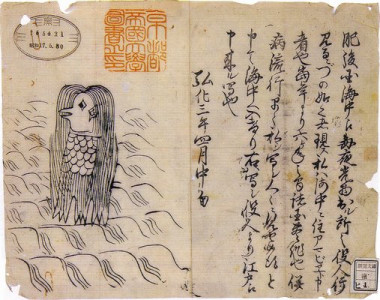 肥後国海中え毎夜光物出ル所之役人行
見るニづの如く者現ス私ハ海中ニ住アマビヱト申
者也当年より六ヶ年之間諸国豊作也併
病流行早々私写シ人々ニ見セ候得と
申て海中へ入けり右ハ写シ役人より江戸え
申来ル写也
弘化三年四月中旬
京都
帝國大學
圖書之印